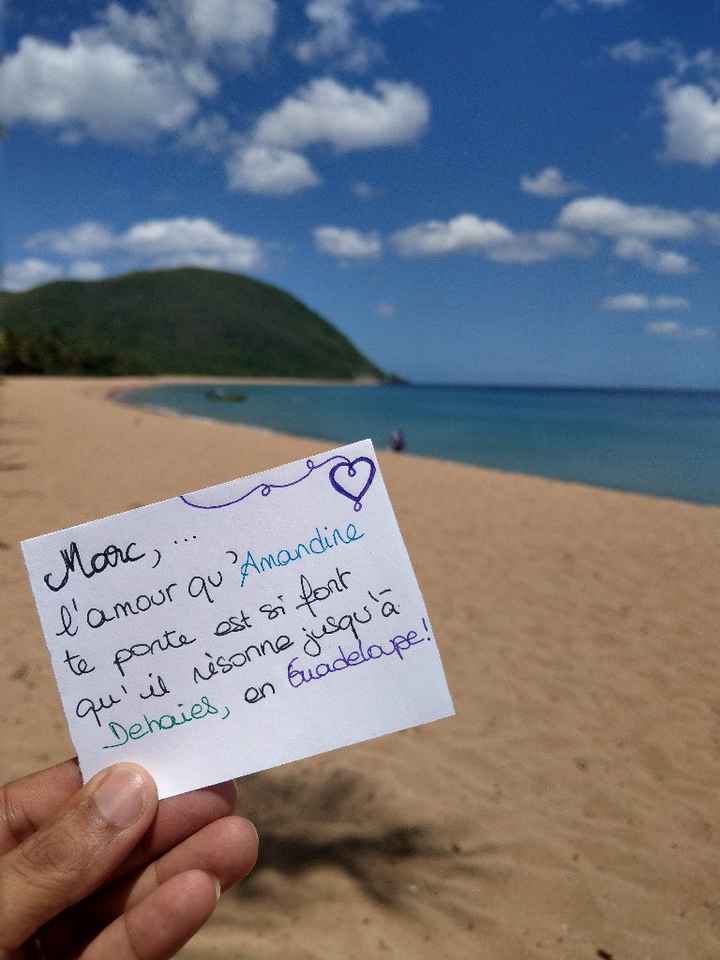 Marc, ...
l'amour qu'Amandine
te porte est si fort
qu'il résonne jusqu'à
Dehaies, en Guadeloupe!